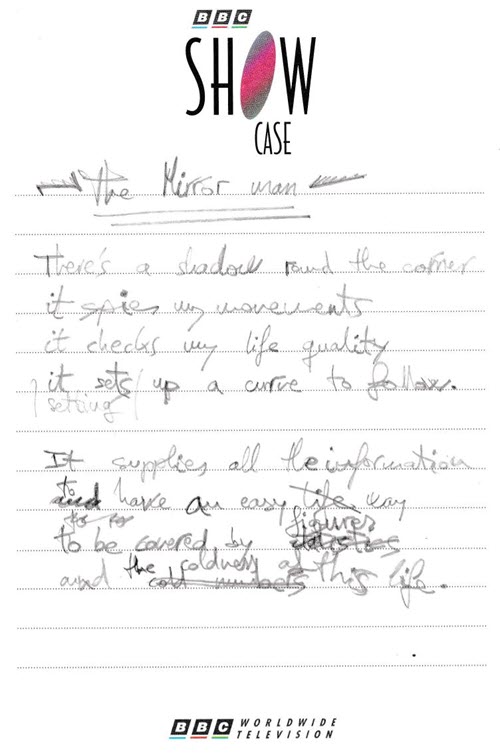 BBC
SHOW
CASE
The Mirror man
There's a shadow round the corner
it spies my movements
it checks my life quality
it sets up a curve to follow.
setting
It supplies all the information
to
and have an easy life way
for
figures
to be covered by statistics
the coldness of
and cold numbers this life.
BBC WORLDWIDE
TELEVISION